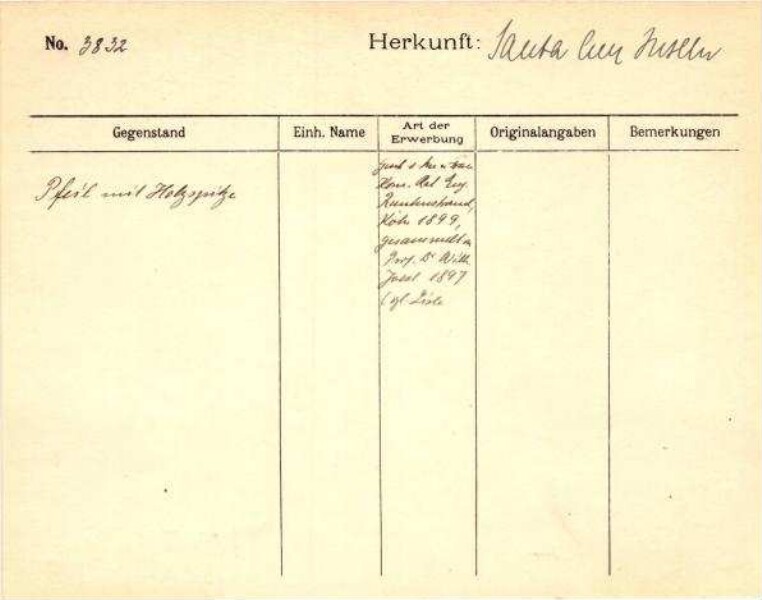 No. 3832
Herkunft: Santa Cruz Inseln
Gegenstand
Einh. Name
Art der
Erwerbung
Originalangaben
Bemerkungen
Pfeil mit Holzspitze
Kom. Rat Eug.
Köln 1899,
gesammelt v.
Prof. Dr Wilh.
Joest 1897